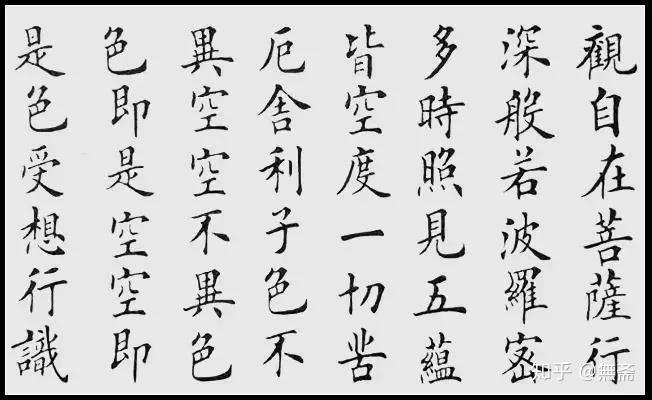 觀自在菩薩行
深般若波羅密
多時照見五蘊
皆空度一切苦
厄舍利子色不
異空空不異色
色即是空空即
是色受想行識
知乎 @無斋